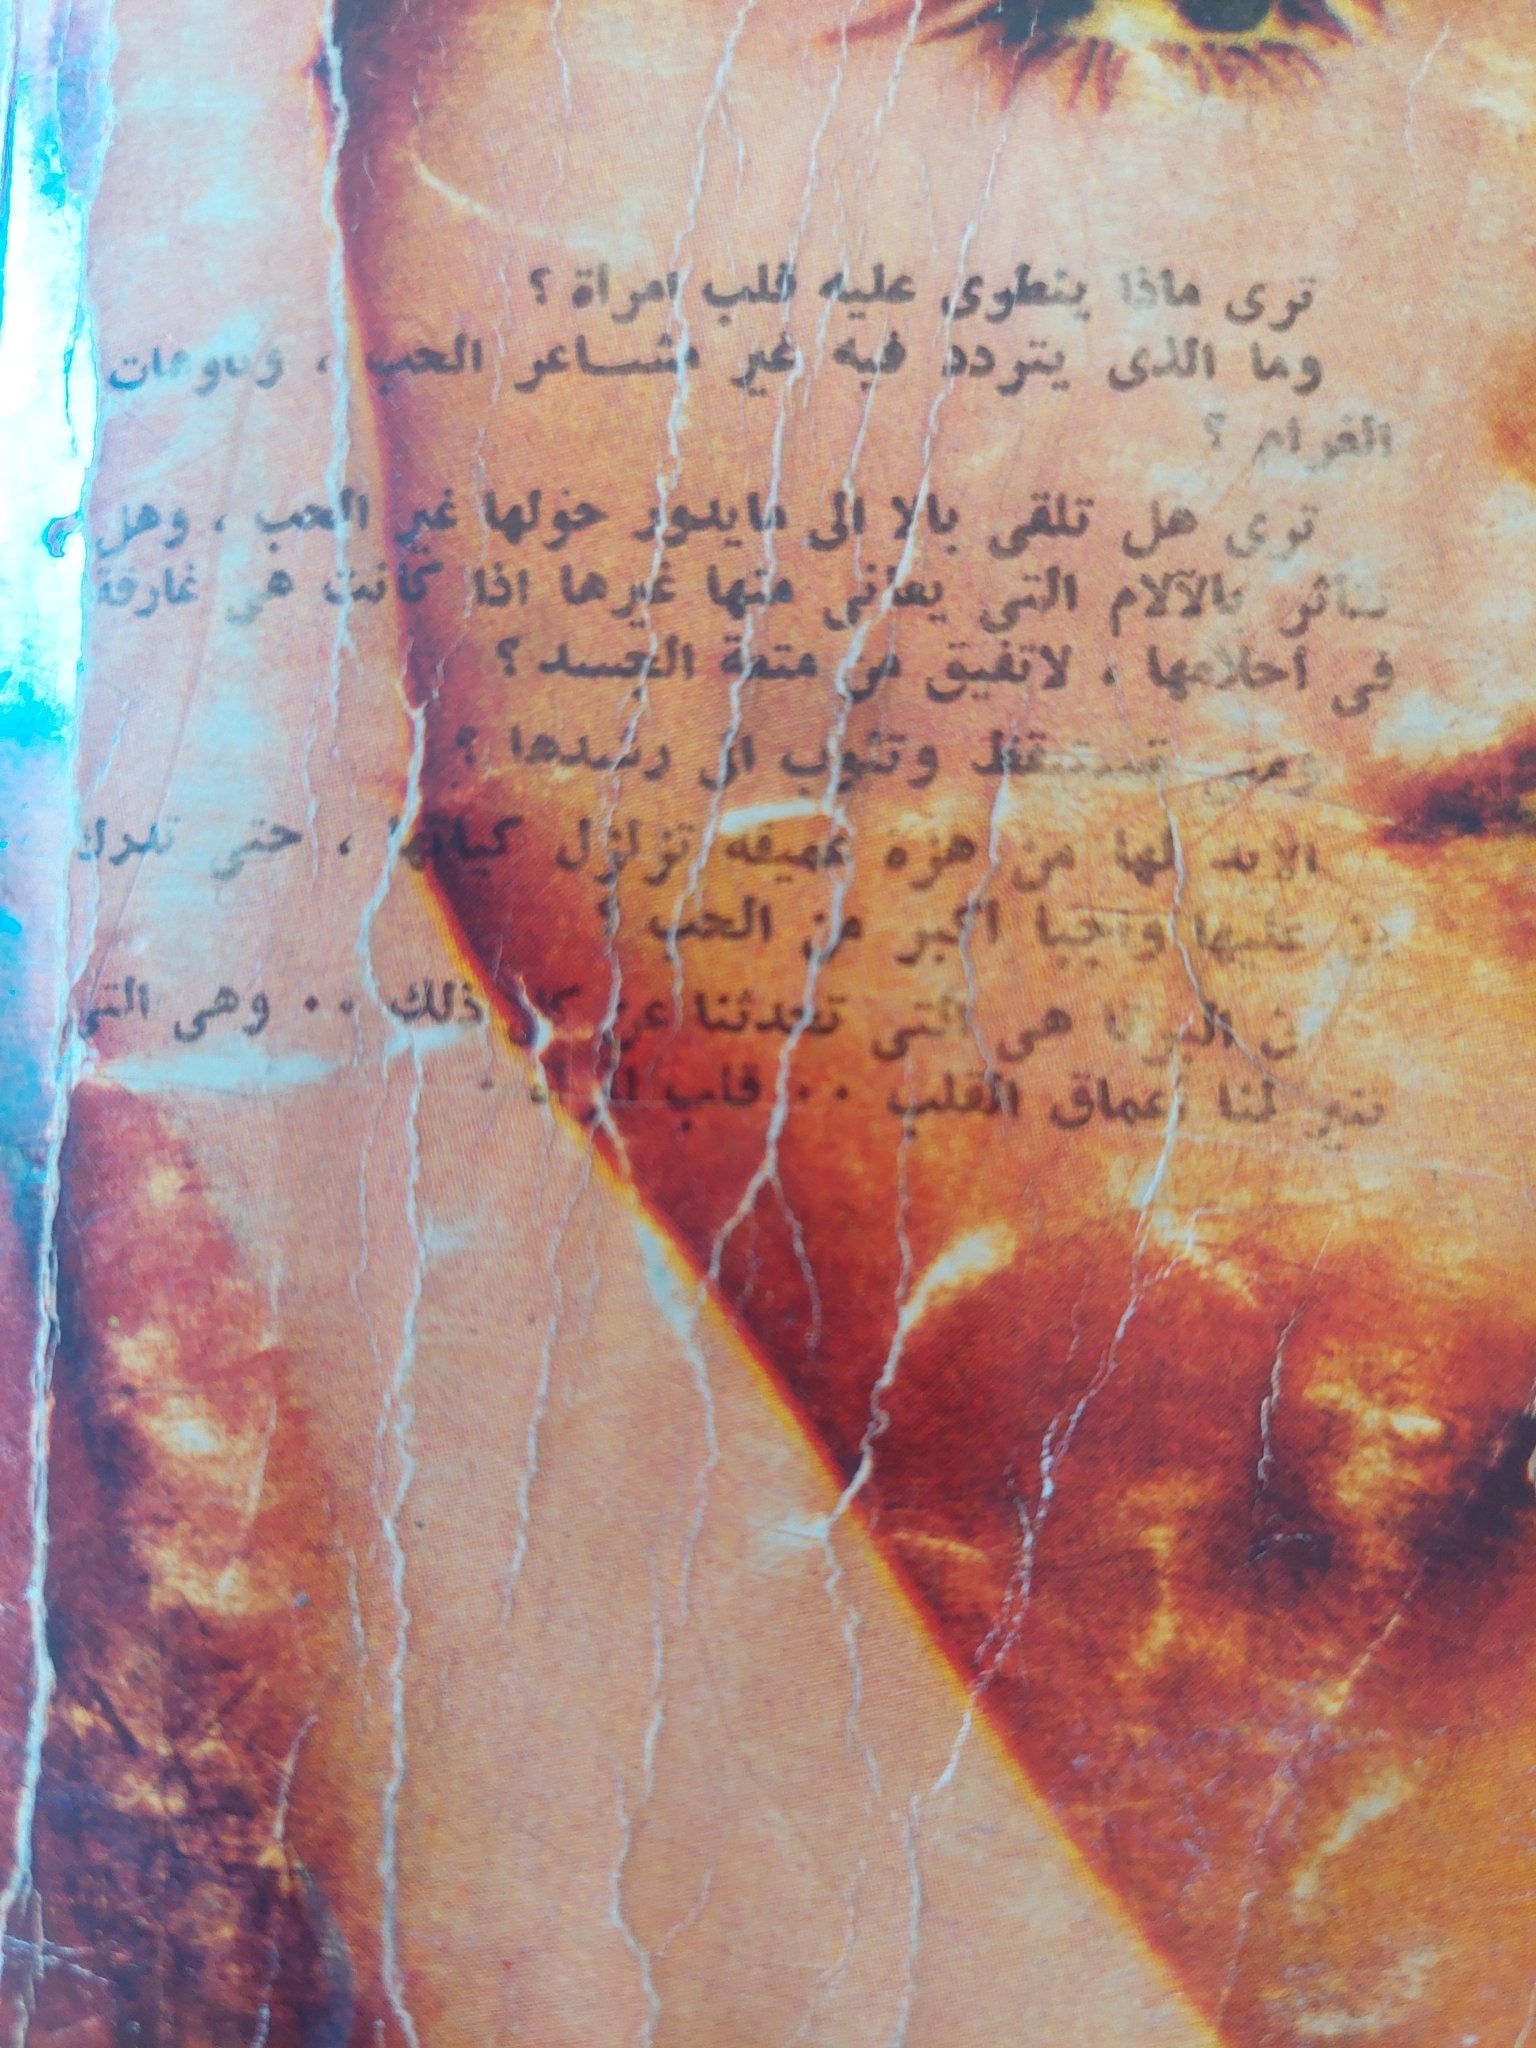 ترى ماذا ينطوى عليه قلب امرأة ؟
وما الذى يتردد فيه غير مشاعر الحب ،
الغرام ؟
ترى هل تلقى بالا الى مايدور حولها غير الحب ، وهل
تتأثر بالآلام التى يعانى منها غيرها اذا كانت هى غارقة
فى أحلامها ، لاتفيق من متعة الجسد ؟
ومتى تستيقظ وتثوب الى رشدها ؟
الابد لها من هزة عميقه تزلزل كيانها ، حتى تدرك
عليها واجبا أكبر من الحب ؟
هى التى تحدثنا عن كل ذلك ٠٠ وهى التى
تنير لنا أعماق القلب ٠٠ قلب امرأة ٠